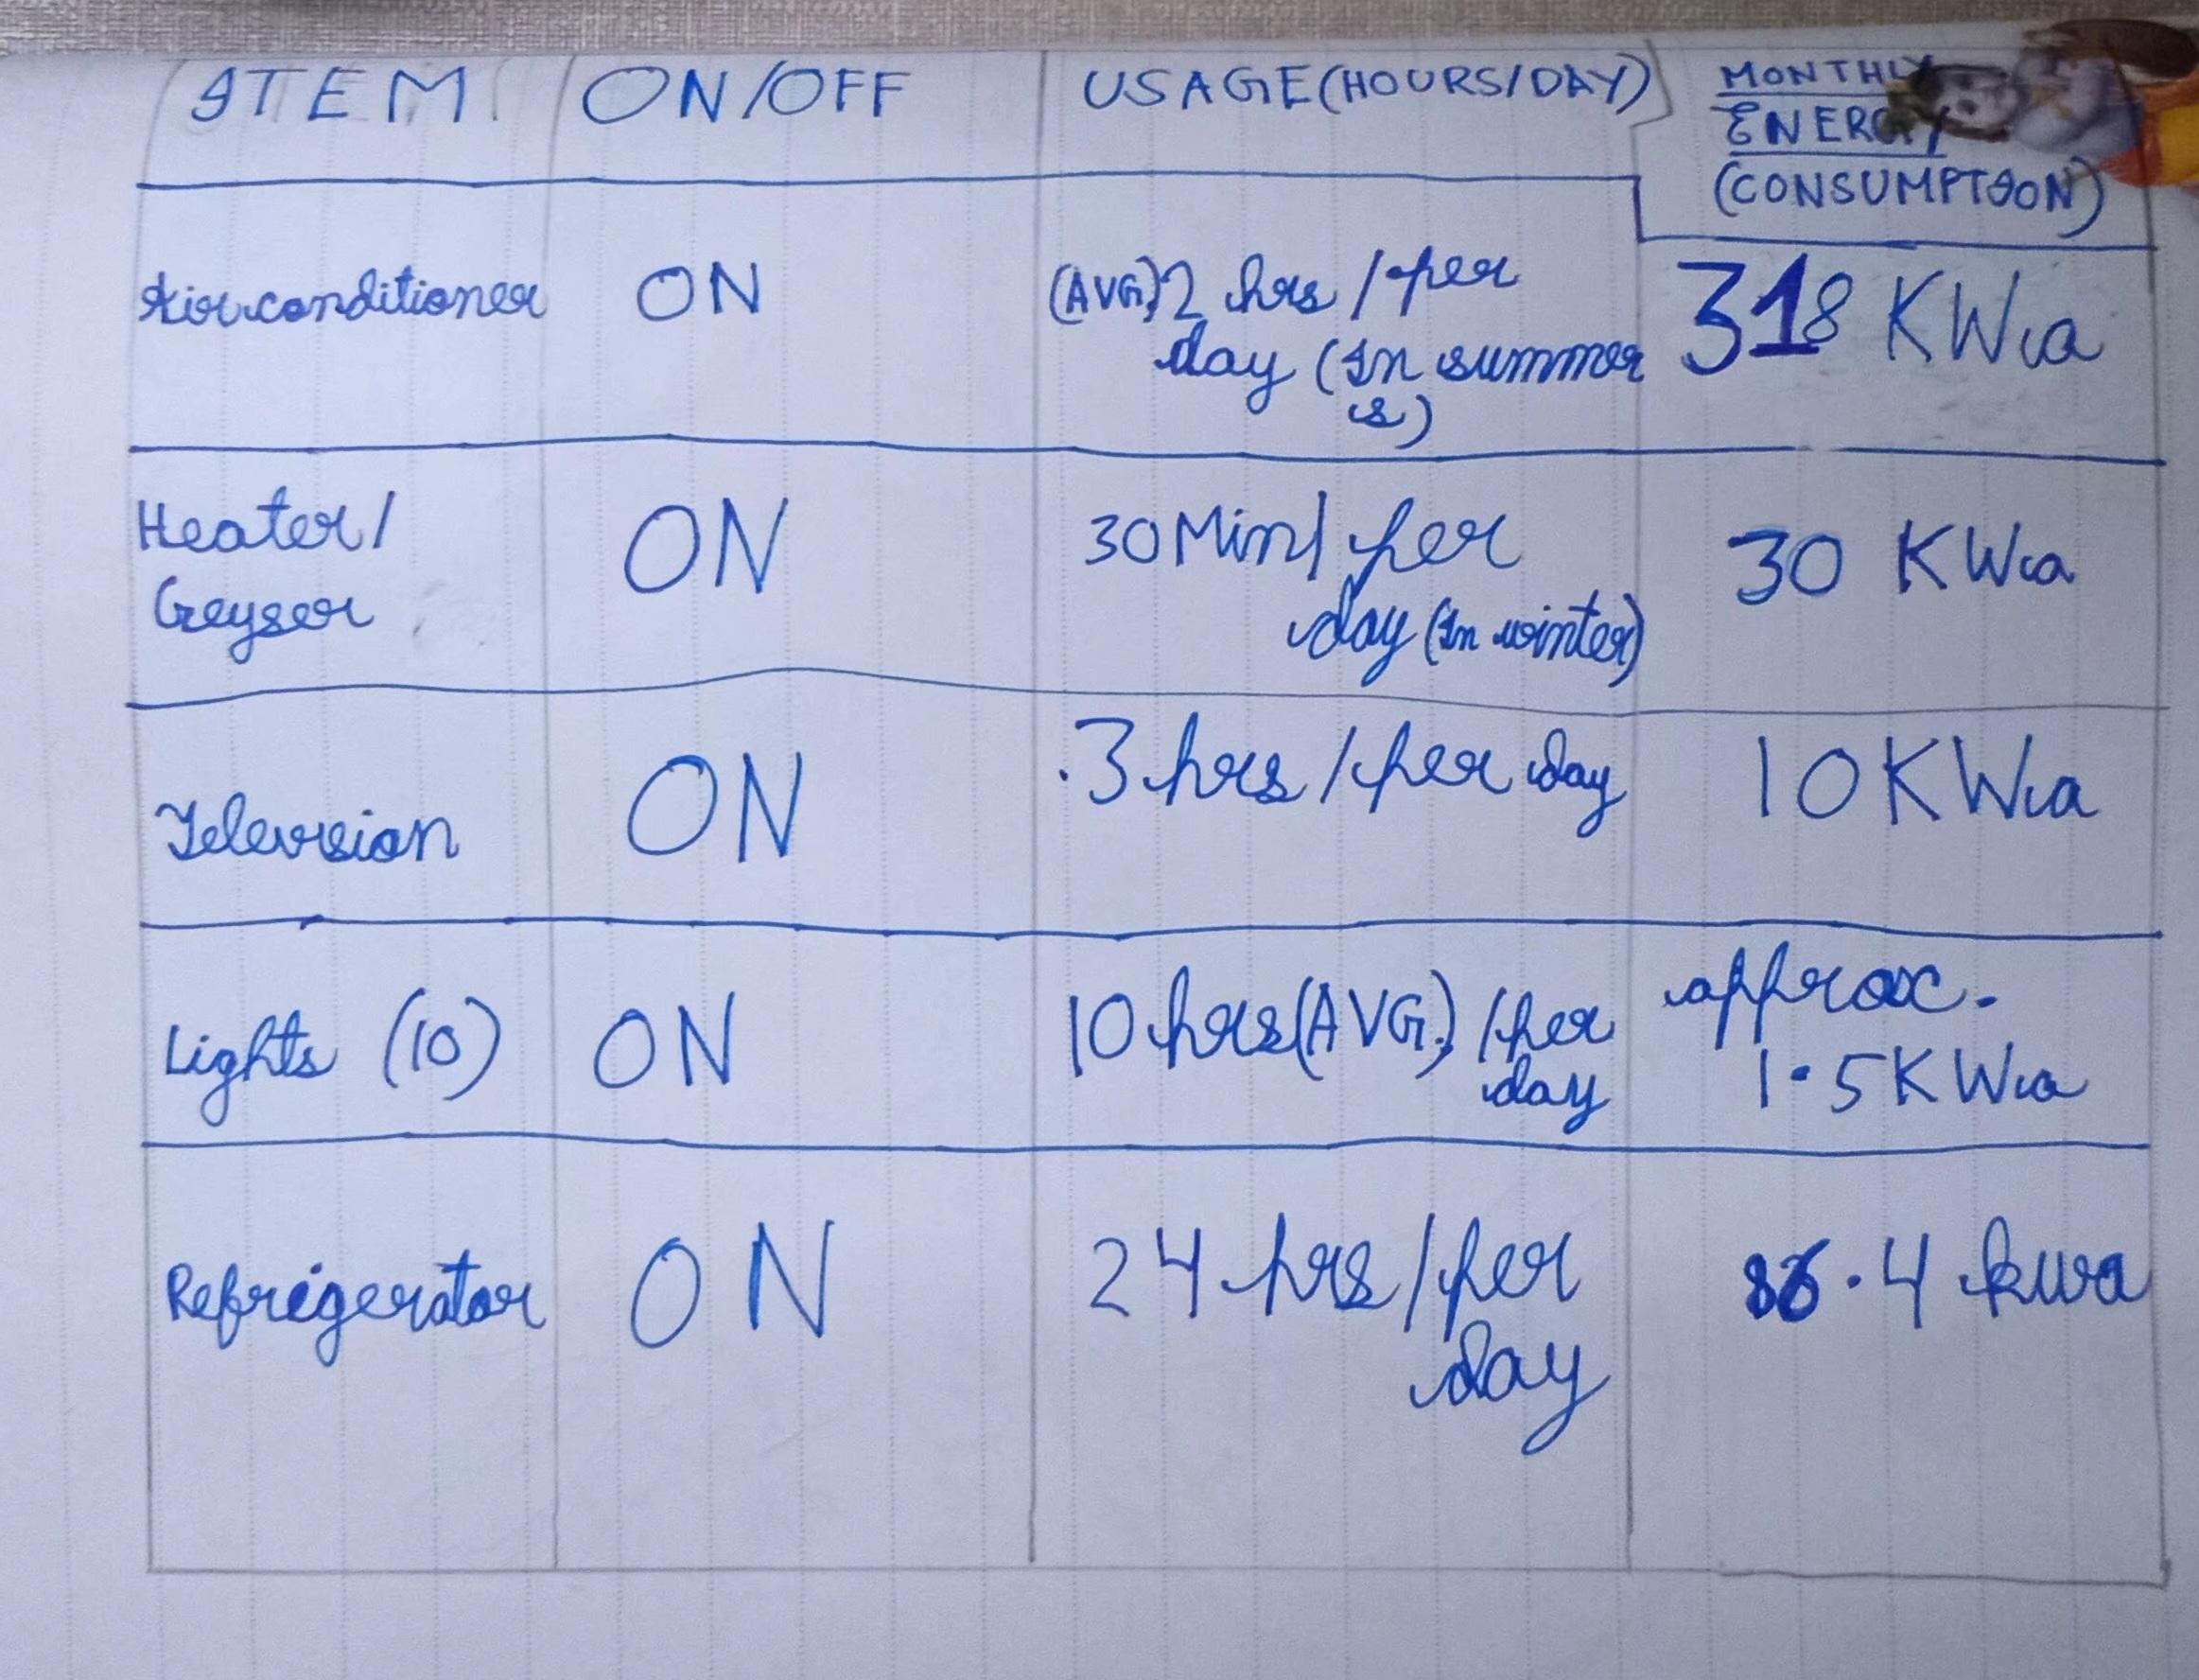 ITEM ON/OFF USAGE(HOURS/DAY) MONTHLY
ENERGY
(CONSUMPTION)
Air conditioner ON (AVG)2 hrs / per 318 KWa
day (In summer
s)
Heater/ ON 30 Min/ per 30 KWa
Geyser day (In winter)
Television ON .3 hrs / per day 10 KWa
Lights (10) ON 10 hrs(AVG.) /per approx.
day 1.5 KWa
Refrigerator ON 24 hrs/per 86.4 kwa
day